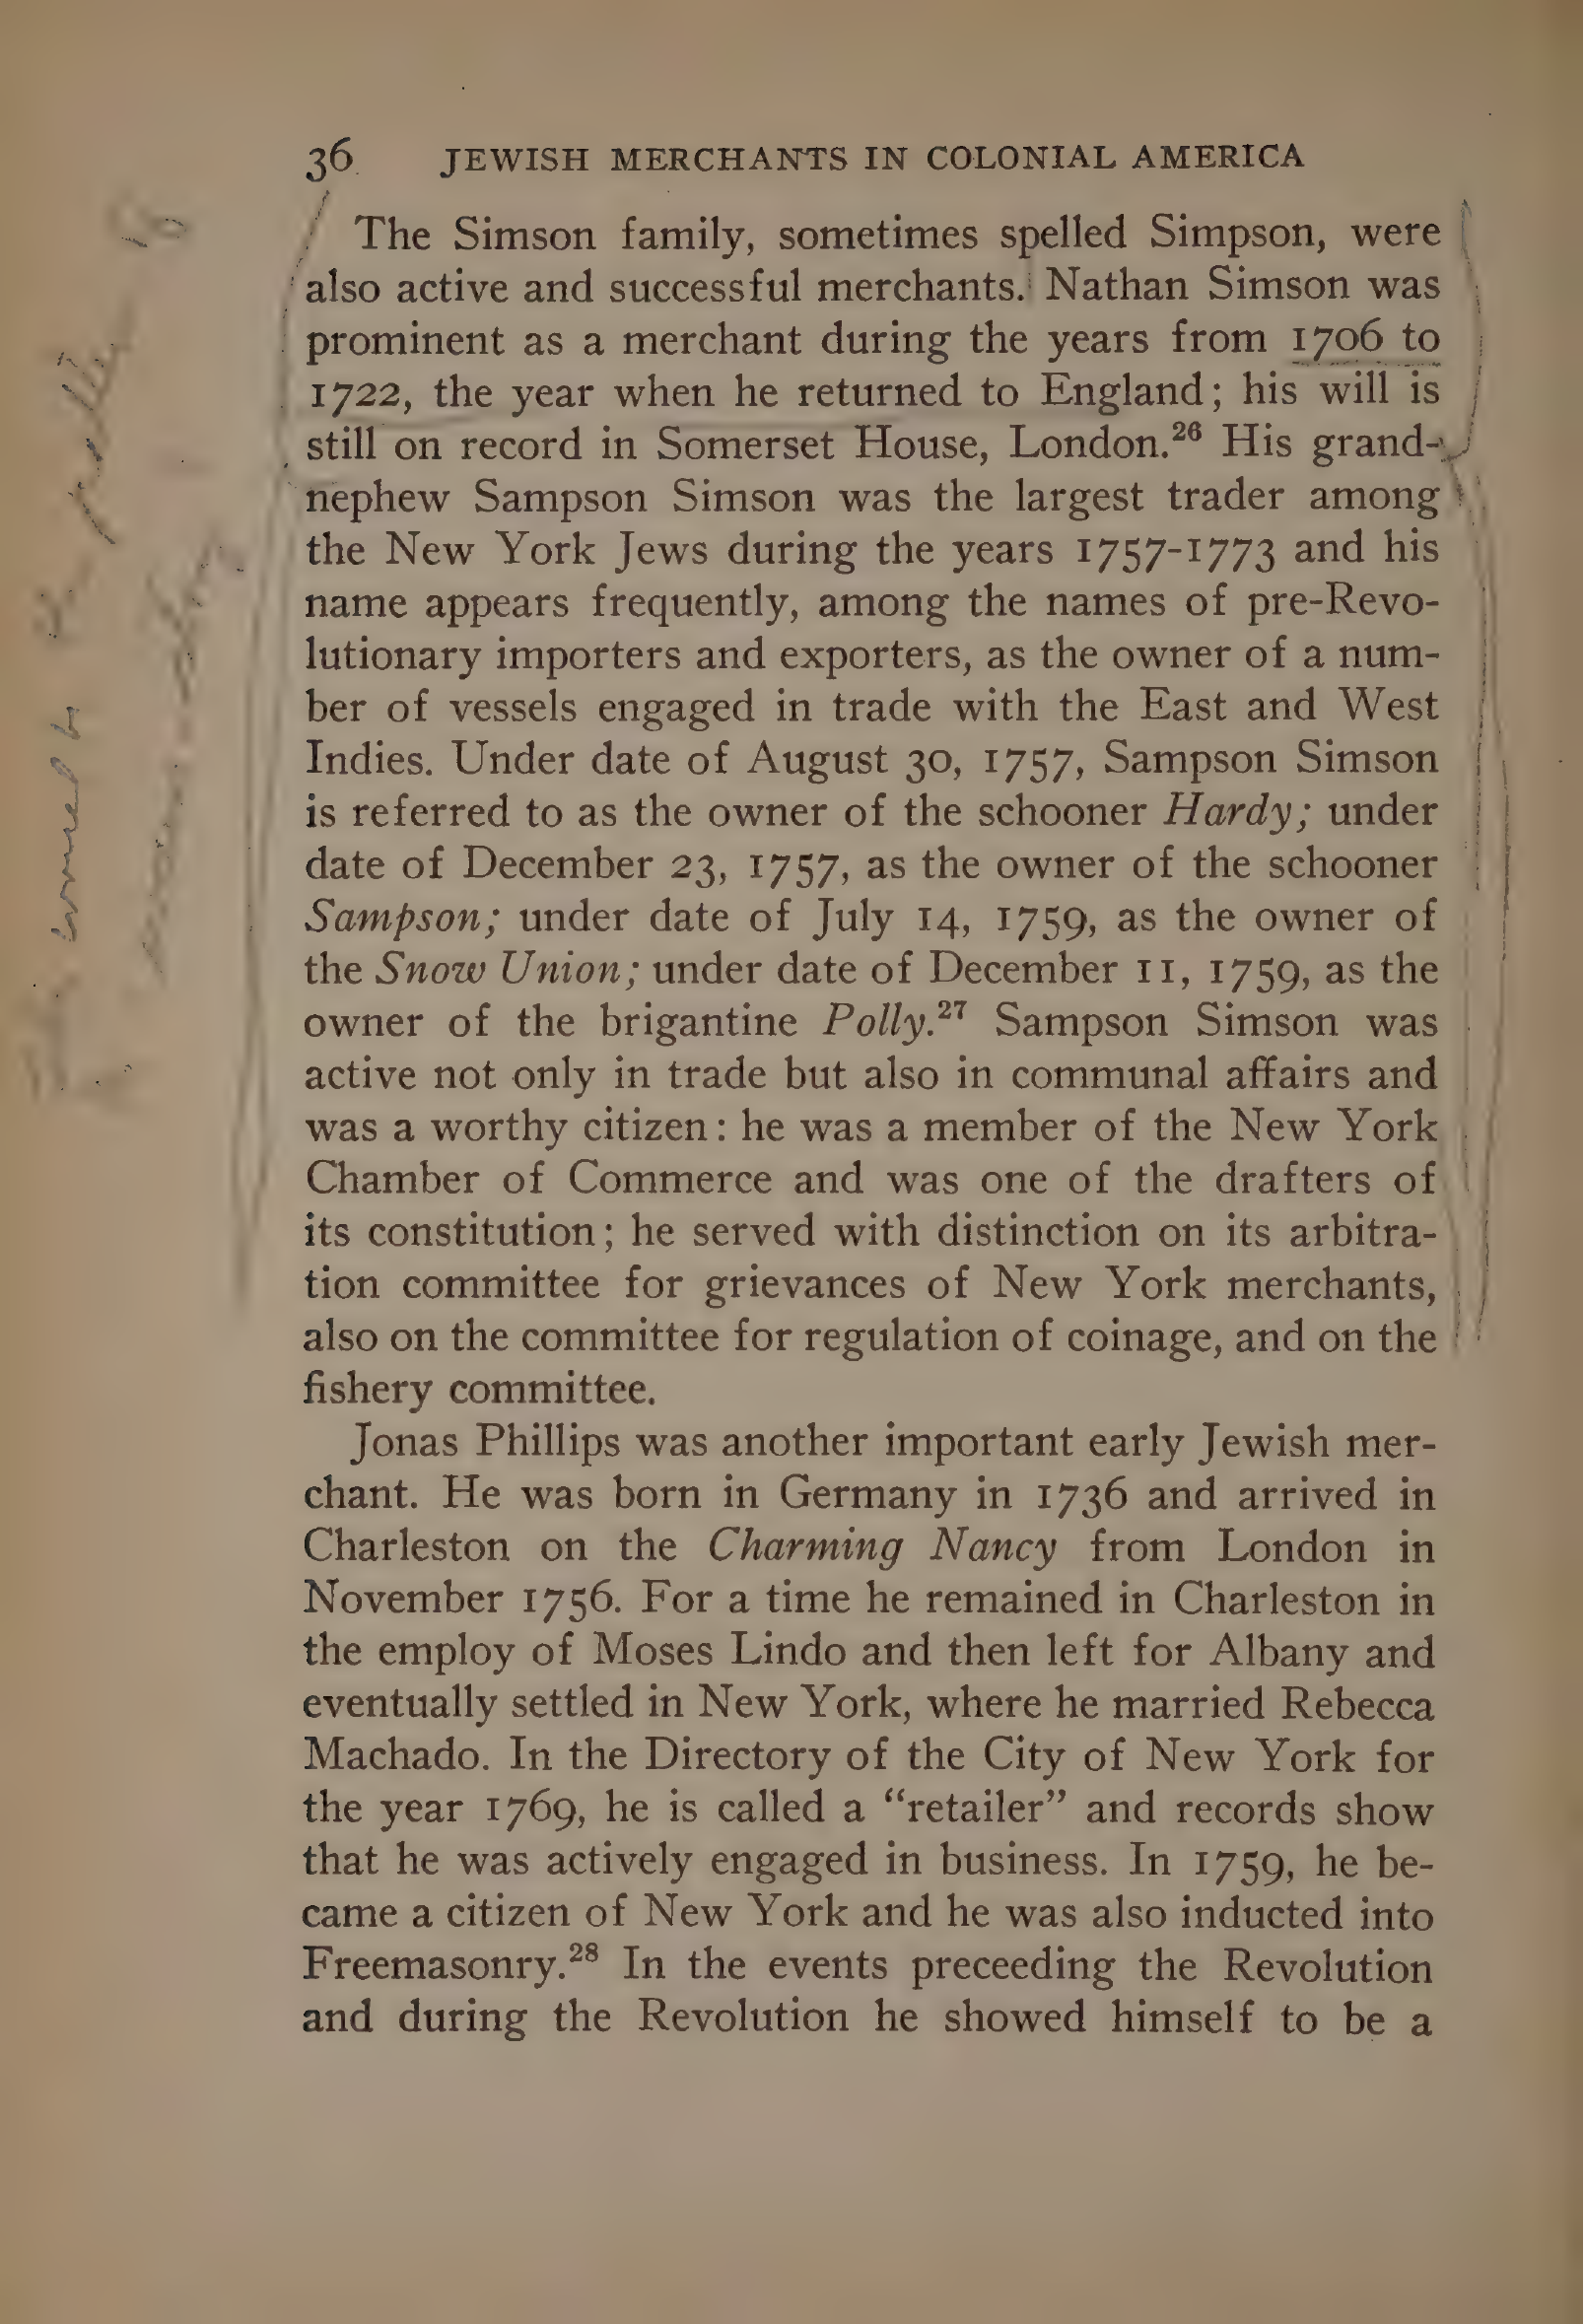 36 JEWISH MERCHANTS IN COLONIAL AMERICA
The Simson family, sometimes spelled Simpson, were
also active and successful merchants. Nathan Simson was
prominent as a merchant during the years from 1706 to
1722, the year when he returned to England; his will is
still on record in Somerset House, London.26 His grand-
nephew Sampson Simson was the largest trader among
the New York Jews during the years 1757-1773 and his
name appears frequently, among the names of pre-Revo-
lutionary importers and exporters, as the owner of a num-
ber of vessels engaged in trade with the East and West
Indies. Under date of August 30, 1757, Sampson Simson
is referred to as the owner of the schooner Hardy; under
date of December 23, 1757, as the owner of the schooner
Sampson; under date of July 14, 1759, as the owner of
the Snow Union; under date of December 11, 1759, as the
owner of the brigantine Polly.27 Sampson Simson was
active not only in trade but also in communal affairs and
was a worthy citizen: he was a member of the New York
Chamber of Commerce and was one of the drafters of
its constitution; he served with distinction on its arbitra-
tion committee for grievances of New York merchants,
also on the committee for regulation of coinage, and on the
fishery committee.
Jonas Phillips was another important early Jewish mer-
chant. He was born in Germany in 1736 and arrived in
Charleston on the Charming Nancy from London in
November 1756. For a time he remained in Charleston in
the employ of Moses Lindo and then left for Albany and
eventually settled in New York, where he married Rebecca
Machado. In the Directory of the City of New York for
the year 1769, he is called a “retailer” and records show
that he was actively engaged in business. In 1759, he be-
came a citizen of New York and he was also inducted into
Freemasonry.28 In the events preceeding the Revolution
and during the Revolution he showed himself to be a